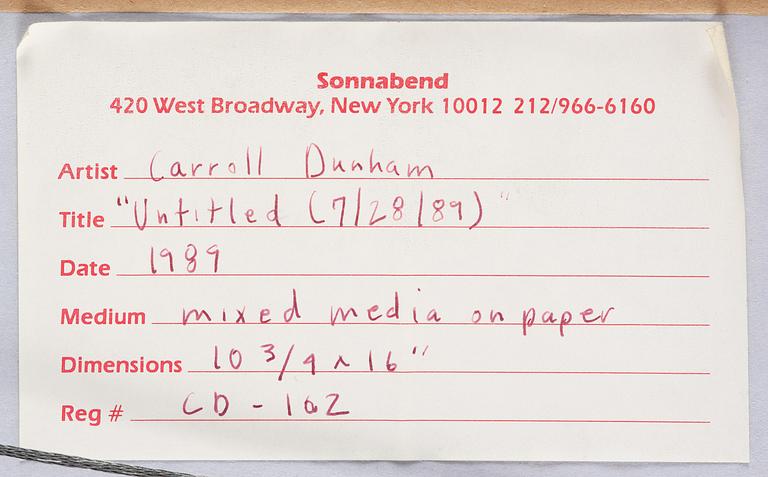 Sonnabend
420 West Broadway, New York 10012 212/966-6160
Artist Carroll Dunham
Title "Untitled (7/28/89)"
Date 1989
Medium mixed media on paper
Dimensions 10 3/4 x 16"
Reg # CD - 162